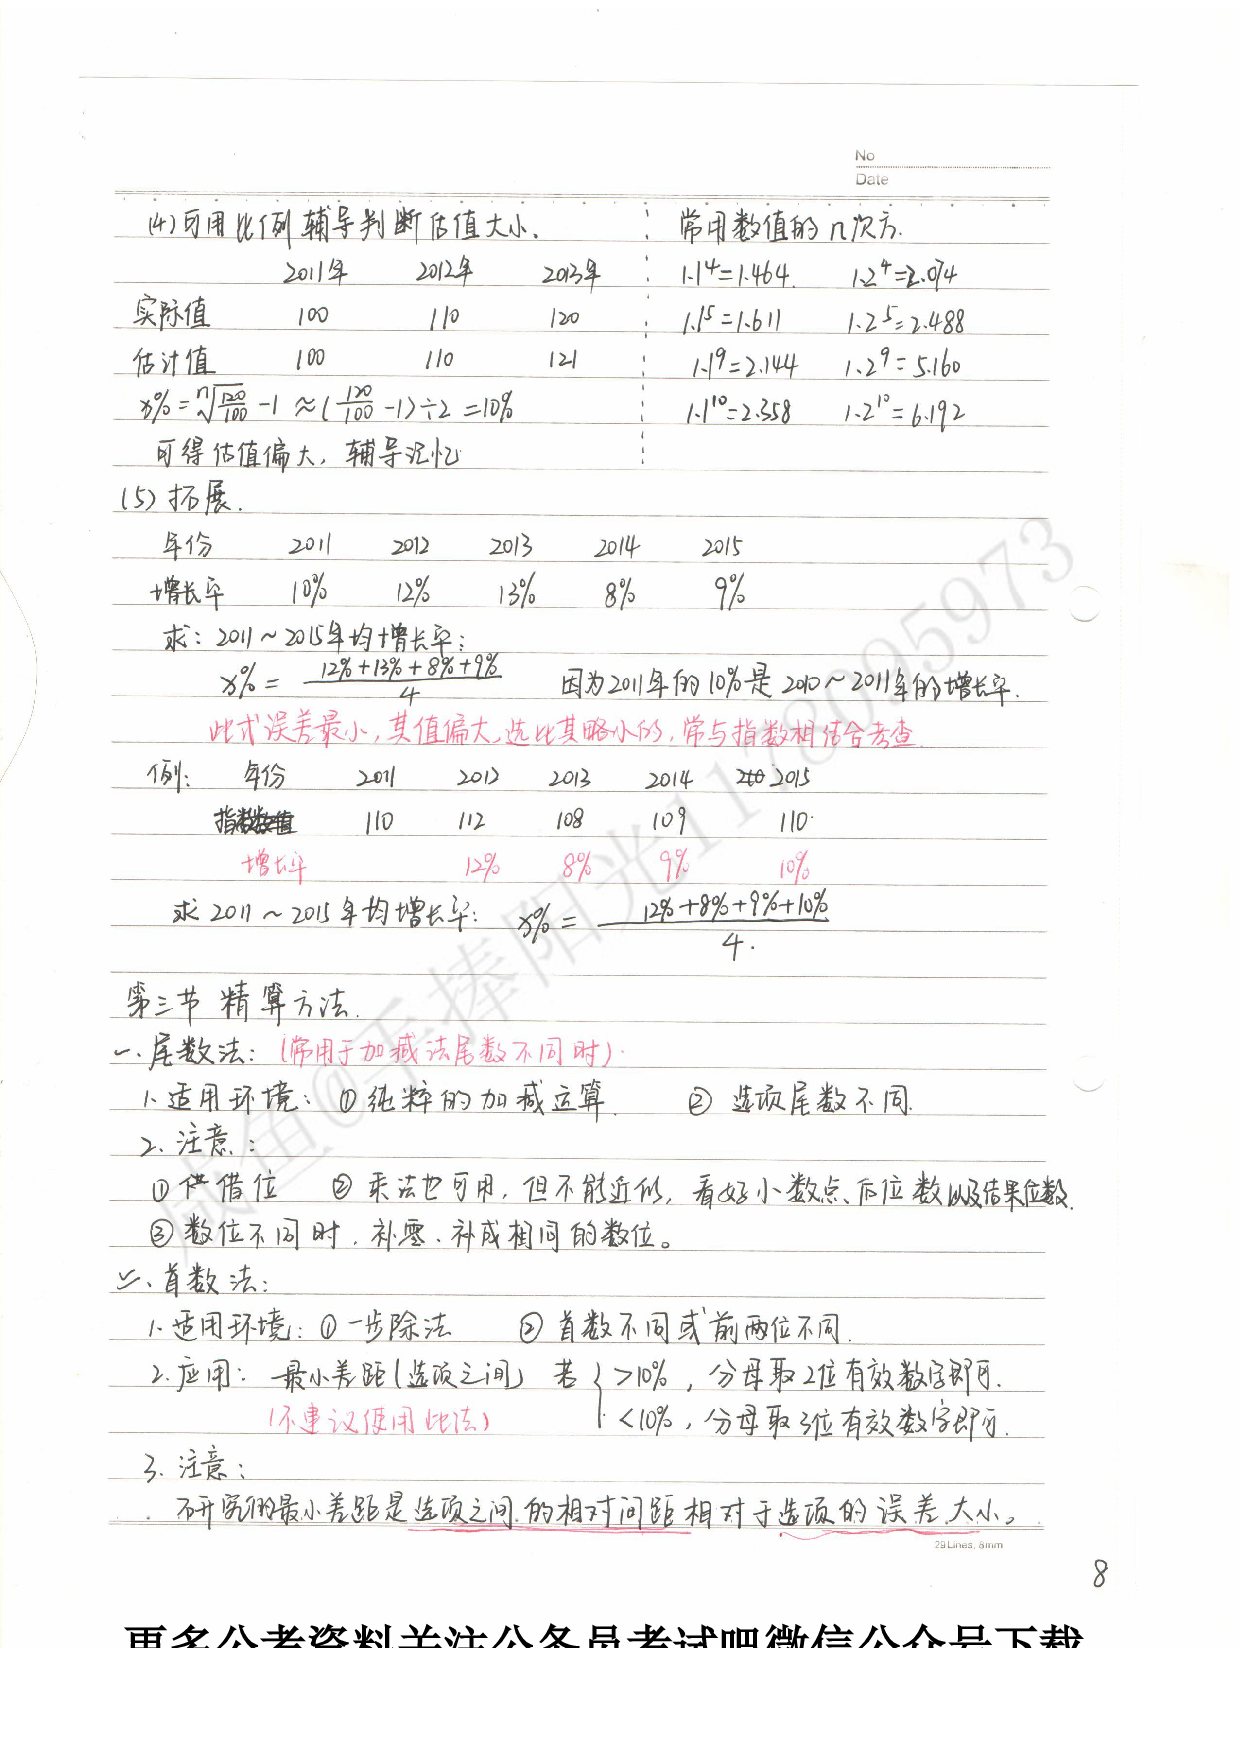 No
Date
(4)可用比例辅导判断估值大小.
2011年 2012年 2013年
实际值 100 110 120
估计值 100 110 121
x%=ⁿ√(120/100) -1 ≈(120/100 -1)÷2 =10%
可得估值偏大, 辅导记忆
常用数值的几次方.
1.1⁴=1.464. 1.2⁴=2.074
1.1⁵=1.611 1.2⁵=2.488
1.1⁹=2.144 1.2⁹=5.160
1.1¹⁰=2.358 1.2¹⁰=6.192
(5)拓展.
年份 2011 2012 2013 2014 2015
增长率 10% 12% 13% 8% 9%
求: 2011~2015年均增长率:
x%= (12%+13%+8%+9%)/4 因为2011年的10%是2010~2011年的增长率.
此式误差最小, 其值偏大, 选比其略小的, 常与指数相结合考查.
例: 年份 2011 2012 2013 2014 2015
指数数值 110 112 108 109 110.
增长率 12% 8% 9% 10%
求2011~2015年均增长率: x%= (12%+8%+9%+10%)/4.
第三节 精算方法.
一、尾数法: (常用于加减法尾数不同时).
1、适用环境: ①纯粹的加减运算. ②选项尾数不同.
2、注意:
①借位 ②乘法也可用, 但不能近似, 看好小数点、后位数以及结果位数.
③数位不同时, 补零、补成相同的数位。
二、首数法:
1、适用环境: ①一步除法 ②首数不同或前两位不同.
2、应用: 最小差距(选项之间) 若 { >10%, 分母取2位有效数字即可.
(不建议使用此法) <10%, 分母取3位有效数字即可.
3、注意:
研究的最小差距是选项之间的相对间距相对于选项的误差大小。
29 Lines, 8mm
8
更多公考资料关注公务员考试吧微信公众号下载
咸鱼@手捧阳光1178095973